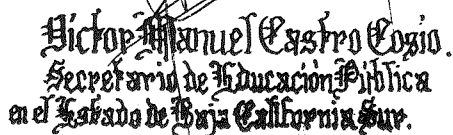 Víctor Manuel Castro Cosío.
Secretario de Educación Pública
en el Estado de Baja California Sur.